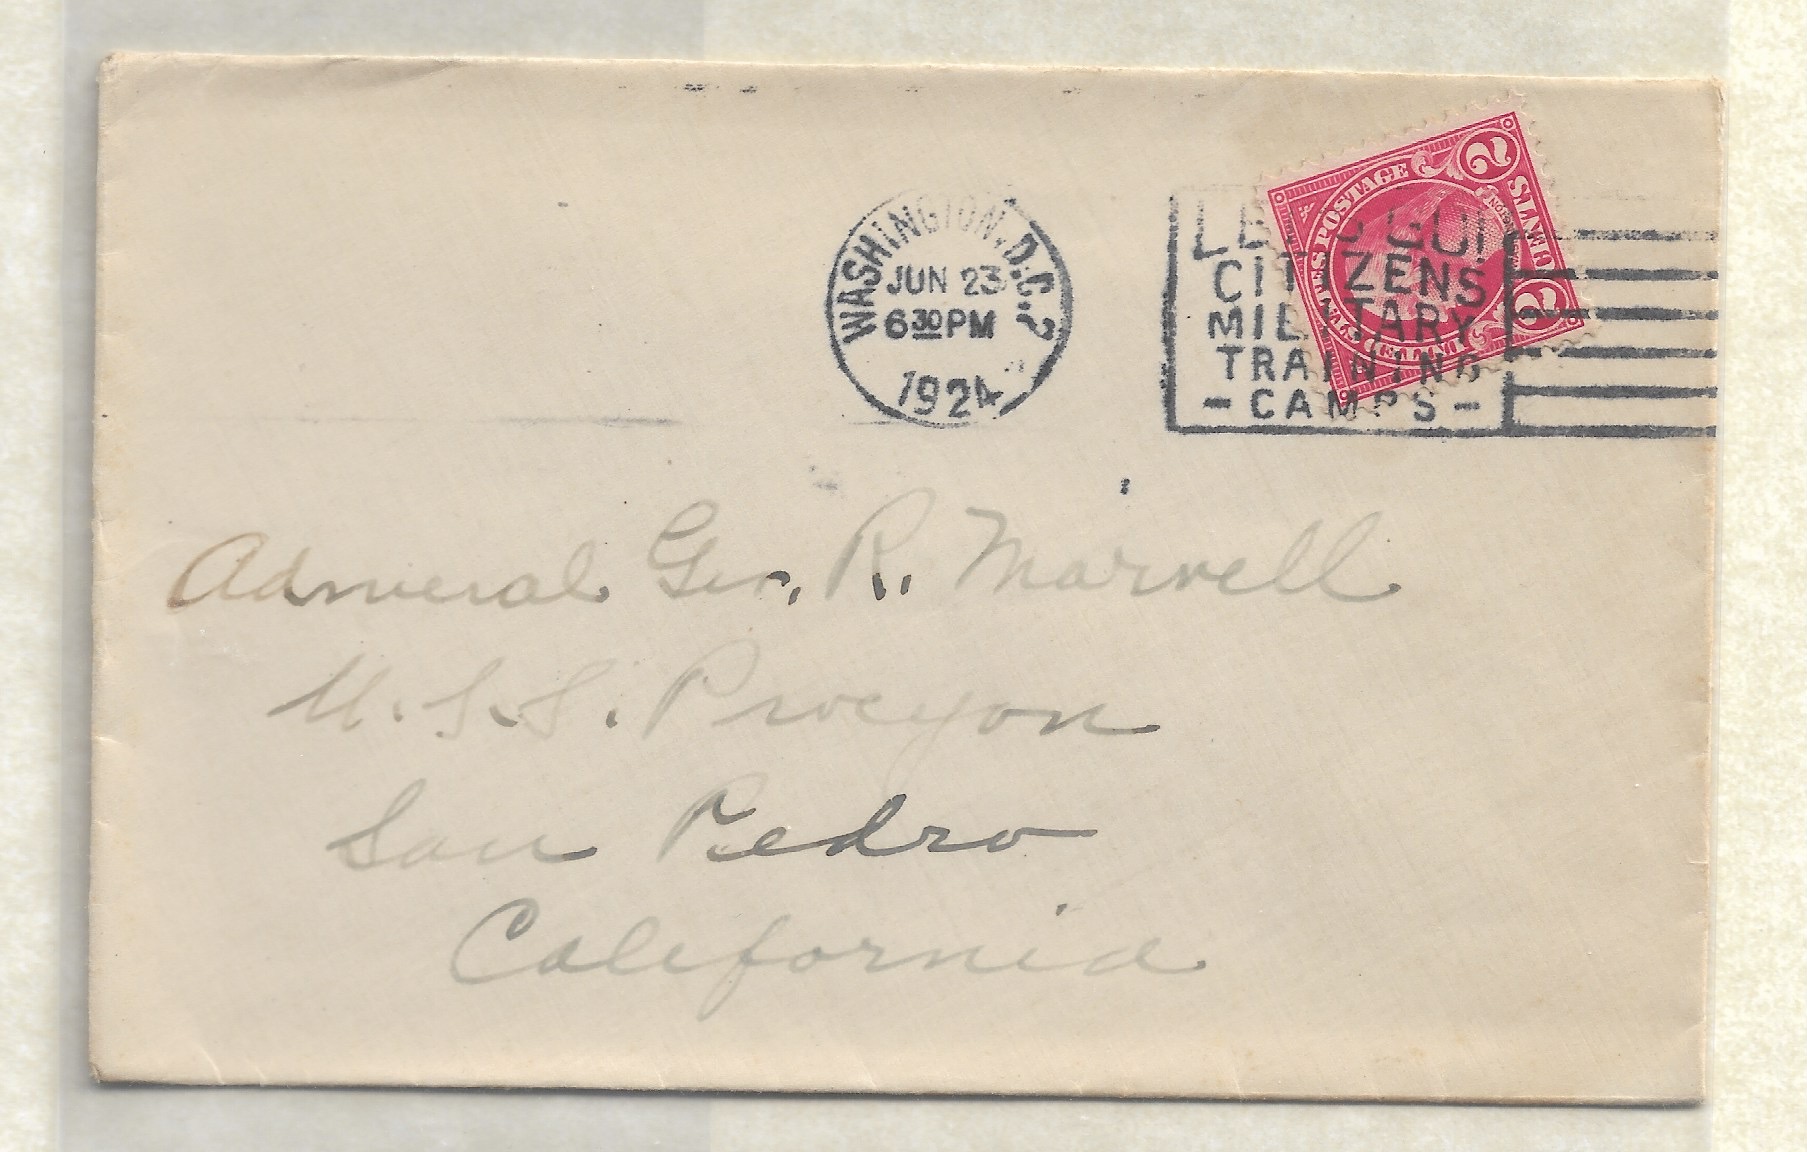 WASHINGTON, D.C. 2
JUN 23
6 30 PM
1924
CITIZENS
MILITARY
TRAINING
- CAMPS -
UNITED STATES POSTAGE
2 CENTS 2
Admiral Geo. R. Marvell
U.S.S. Procyon
San Pedro
California